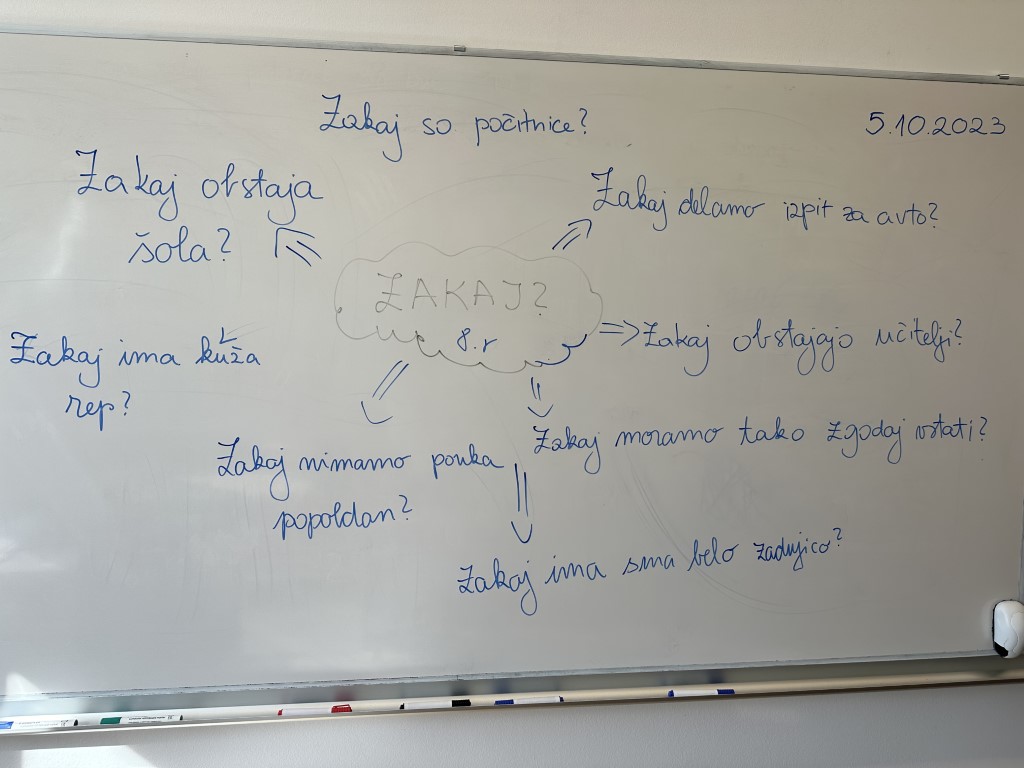 Zakaj so počitnice?
5.10.2023
Zakaj obstaja
šola?
Zakaj delamo izpit za avto?
ZAKAJ?
8.r
Zakaj obstajajo učitelji?
Zakaj ima kuža
rep?
Zakaj moramo tako zgodaj vstati?
Zakaj nimamo pouka
popoldan?
Zakaj ima srna belo zadnjico?